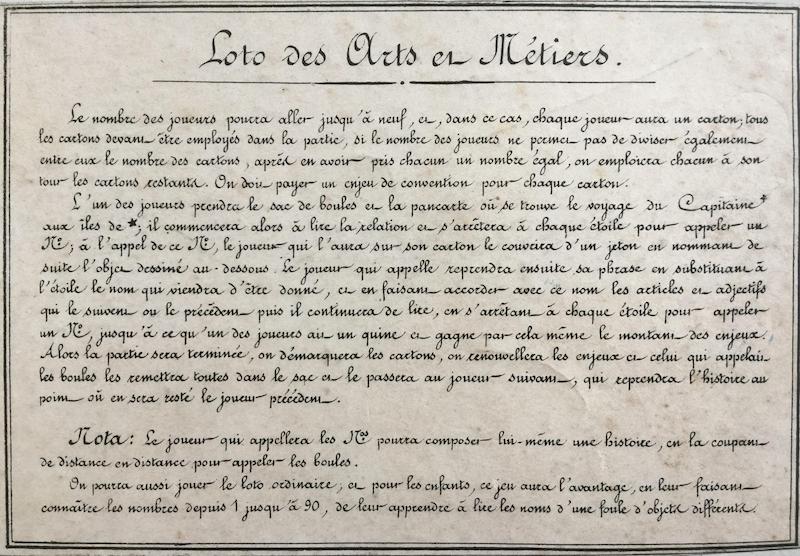 Loto des Arts et Métiers.
Le nombre des joueurs pourra aller jusqu'à neuf, et, dans ce cas, chaque joueur aura un carton; tous
les cartons devant être employés dans la partie, si le nombre des joueurs ne permet pas de diviser également
entre eux le nombre des cartons, après en avoir pris chacun un nombre égal, on emploiera chacun à son
tour les cartons restants. On doit payer un enjeu de convention pour chaque carton.
L'un des joueurs prendra le sac de boules et la pancarte où se trouve le voyage du Capitaine *
aux îles de *; il commencera alors à lire la relation et s'arrêtera à chaque étoile pour appeler un
No; à l'appel de ce No, le joueur qui l'aura sur son carton le couvrira d'un jeton en nommant de
suite l'objet dessiné au-dessous. Le joueur qui appelle reprendra ensuite sa phrase en substituant à
l'étoile le nom qui viendra d'être donné, et en faisant accorder avec ce nom les articles et adjectifs
qui le suivent ou le précèdent puis il continuera de lire, en s'arrêtant à chaque étoile pour appeler
un No, jusqu'à ce qu'un des joueurs ait un quine et gagne par cela même le montant des enjeux.
Alors la partie sera terminée, on démarquera les cartons, on renouvellera les enjeux et celui qui appelait
les boules les remettra toutes dans le sac et le passera au joueur suivant, qui reprendra l'histoire au
point où en sera resté le joueur précédent.
Nota: Le joueur qui appellera les Nos pourra composer lui-même une histoire, en la coupant
de distance en distance pour appeler les boules.
On pourra aussi jouer le loto ordinaire; et pour les enfants, ce jeu aura l'avantage, en leur faisant
connaître les nombres depuis 1 jusqu'à 90, de leur apprendre à lire les noms d'une foule d'objets différents.